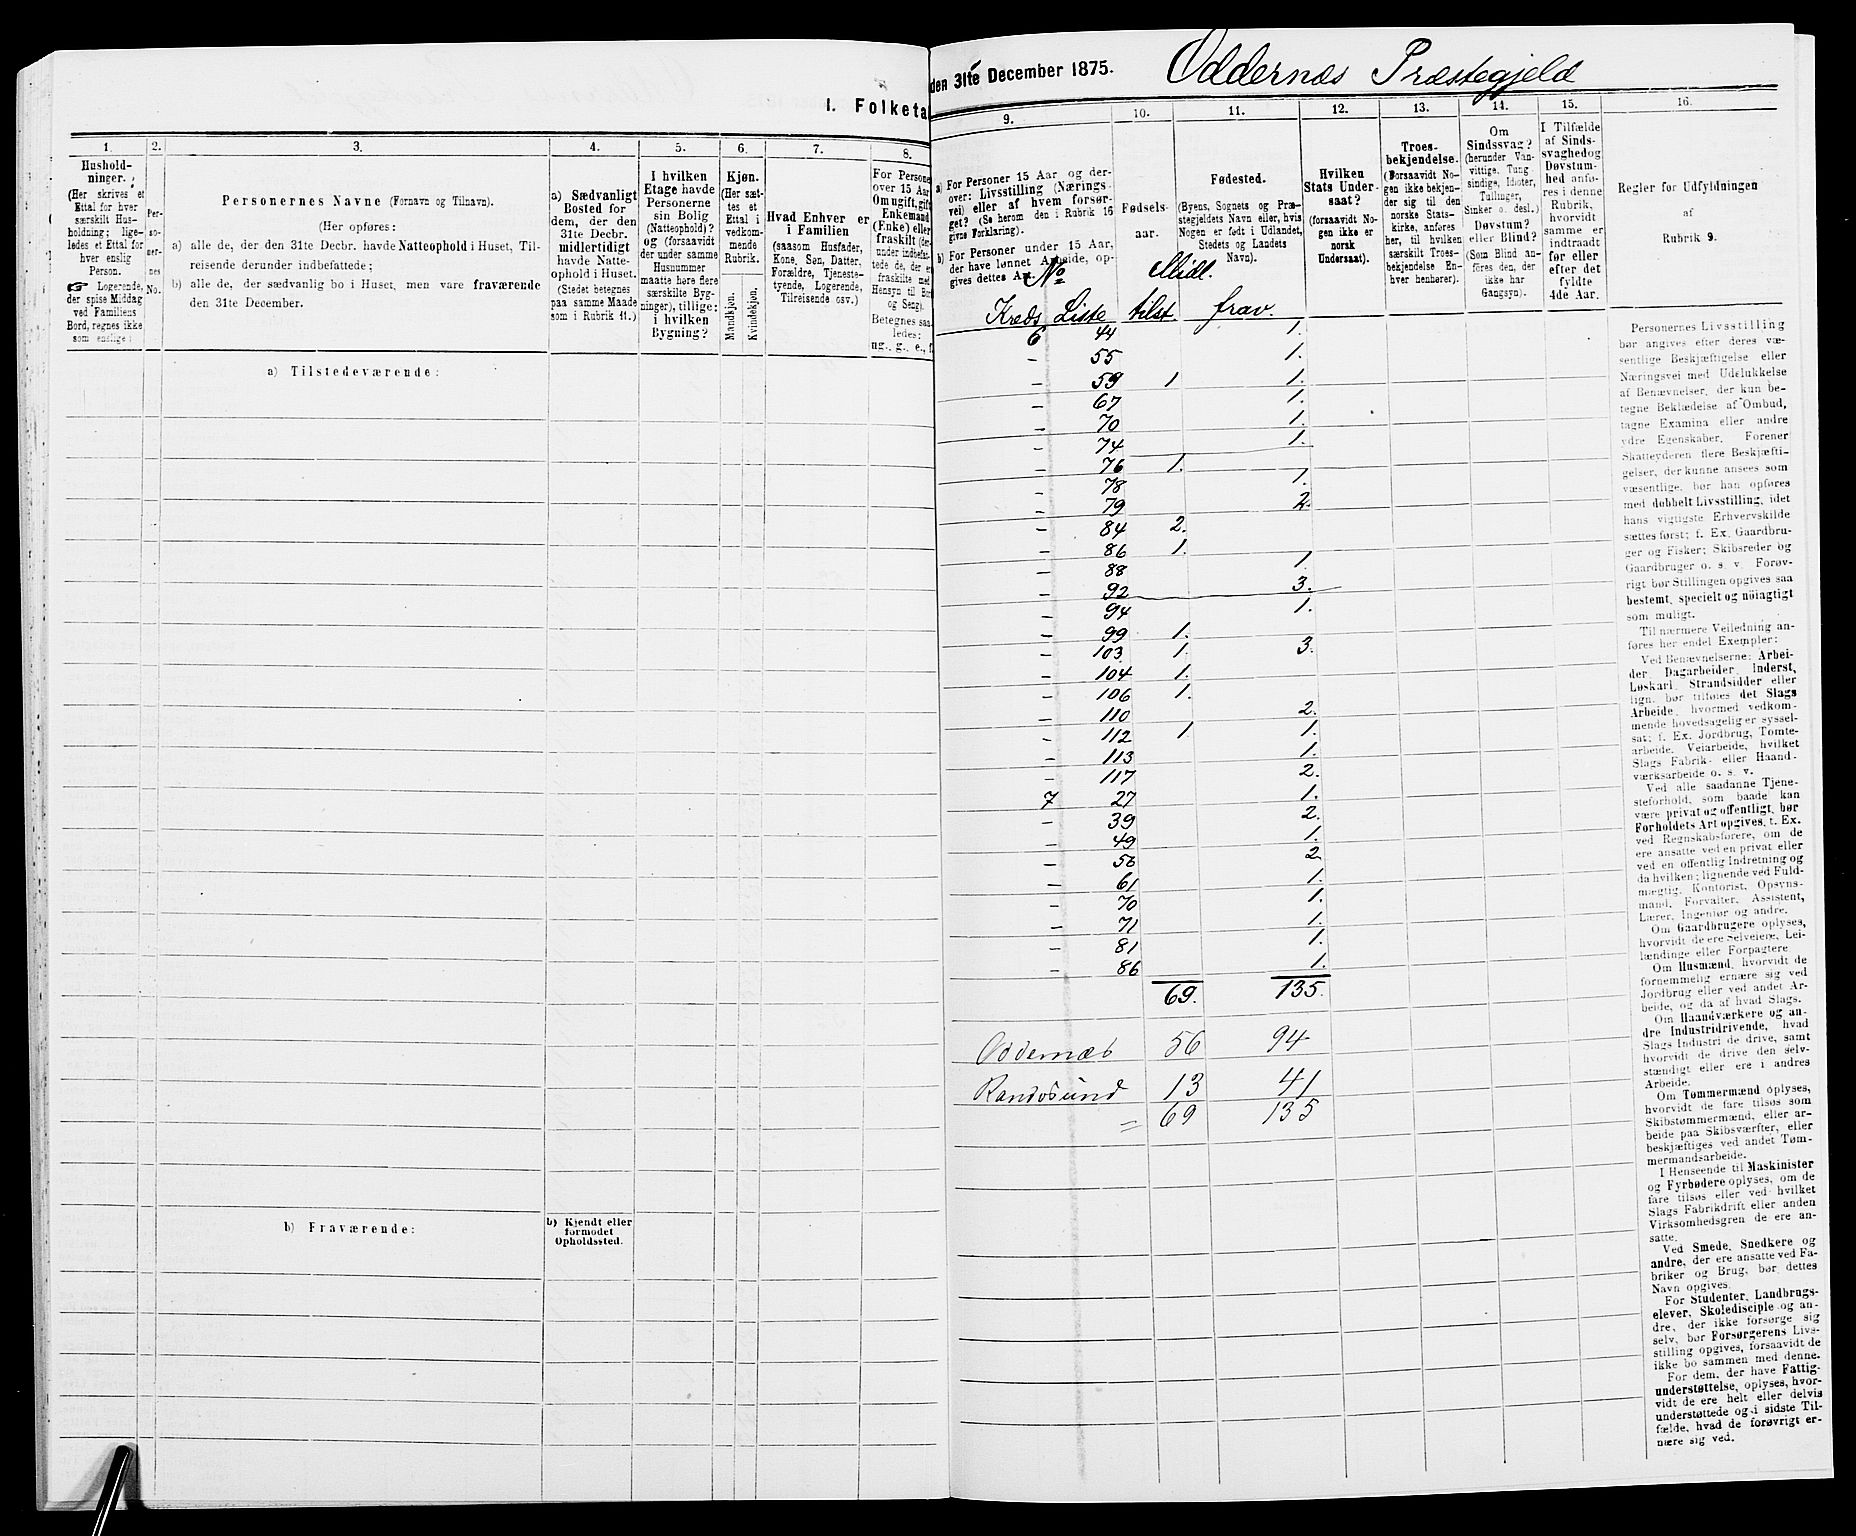 I. Folketa
1.
Hushold-
ninger.
(Her skrives et
Ettal for hver
særskilt Hus-
holdning; lige-
ledes et Ettal for
hver enslig
Person.
☞ Logerende,
der spise Middag
ved Familiens
Bord, regnes ikke
som enslige.)
2.
Per-
so-
ner-
nes
No.
3.
Personernes Navne (Fornavn og Tilnavn).
(Her opføres:
a) alle de, der den 31te Decbr. havde Natteophold i Huset, Til-
reisende derunder indbefattede;
b) alle de, der sædvanlig bo i Huset, men vare fraværende
den 31te December.
4.
a) Sædvanligt
Bosted for
dem, der den
31te Decbr.
midlertidigt
havde Natte-
ophold i Huset.
(Stedet betegnes
paa samme Maade
som i Rubrik 11.)
5.
I hvilken
Etage havde
Personerne
sin Bolig
(Natteophold)?
og (forsaavidt
der under samme
Husnummer
maatte høre flere
særskilte Byg-
ninger), tillige:
i hvilken
Bygning?
6.
Kjøn.
(Her sæt-
tes et
Ettal i
vedkom-
mende
Rubrik.
Mandkjøn.
Kvindekjøn.
7.
Hvad Enhver er
i Familien
(saasom Husfader,
Kone, Søn, Datter,
Forældre, Tjeneste-
tyende, Logerende,
Tilreisende osv.)
8.
For Persone
over 15 Aar
Om ugift, gift
Enkemand
(Enke) eller
fraskilt (der-
under indbefat-
tede de, der er
fraskilte med
Hensyn til Bord
og Seng).
Betegnes saa-
ledes:
ug., g., e., f.
a) Tilstedeværende:
b) Fraværende:
b) Kjendt eller
formodet
Opholdssted.
den 31te December 1875.
Oddernæs Præstegjeld
9.
a) For Personer 15 Aar og der-
over: Livsstilling (Nærings-
vei) eller af hvem forsør-
get? (Se herom den i Rubrik 16
givne Forklaring).
b) For Personer under 15 Aar,
der have lønnet Arbeide, op-
gives dettes A
10.
Fødsels-
aar.
11.
Fødested.
(Byens, Sognets og Præ-
stegjeldets Navn eller, hvis
Nogen er født i Udlandet,
Stedets og Landets
Navn).
12.
Hvilken
Stats Under-
saat?
(forsaavidt No-
gen ikke er
norsk
Undersaat).
13.
Troes-
bekjendelse.
(Forsaavidt No-
gen ikke bekjen-
der sig til den
norske Stats-
kirke, anføres
her, til hvilken
særskilt Troes-
bekjendelse En-
hver henhører).
14.
Om
Sindssvag?
(herunder Van-
vittige, Tung
sindige, Idioter,
Tullinger,
Sinker o. desl.)
Døvstum?
eller Blind?
(Som Blind an-
føres den, der
ikke har
Gangsyn).
15.
I Tilfælde
af Sinds-
svaghed og
Døvstum-
hed anfø-
res i denne
Rubrik,
hvorvidt
samme er
indtraadt
før eller
efter det
fyldte
4de Aar.
16.
Regler for Udfyldningen
af
Rubrik 9.
No Midl.
Kreds Liste tilst. frav.
6 44 1.
– 55 1.
– 59 1 1.
– 67 1.
– 70 1.
– 74 1.
– 76 1.
– 78 1.
– 79 2.
– 84 2.
– 86 1.
– 88 1.
– 92 3.
– 94 1.
– 99 1.
– 103 1. 3.
– 104 1.
– 106 1.
– 110 2.
– 112 1 1.
– 113 1.
– 117 2.
7 27 1.
– 39 2.
– 49 1.
– 56 2
– 61 1.
– 70 1.
– 71 1.
– 81 1.
– 86 1.
69. 135.
Oddernæs 56 94
Randøsund 13 41
= 69 135
Personernes Livsstilling
bør angives efter deres væ-
sentlige Beskjæftigelse eller
Næringsvei med Udelukkelse
af Benævnelser, der kun be-
tegne Beklædelse af Ombud,
tagne Examina eller andre
ydre Egenskaber. Forener
Skatteyderen flere Beskjæfti-
gelser, der kunne ansees som
væsentlige, bør han opføres
med dobbelt Livsstilling, idet
hans vigtigste Erhvervskilde
sættes først; f. Ex. Gaardbru-
ger og Fisker; Skibsreder og
Gaardbruger o. s. v. Forøv-
rigt bør Stillingen opgives saa
bestemt, specielt og nöiagtigt
som muligt.
Til nærmere Veiledning an-
føres her endel Exempler:
Ved Benævnelserne: Arbei-
der, Dagarbeider, Inderst,
Løskarl, Strandsidder eller
lign. bør tilføies det Slags
Arbeide, hvormed vedkom-
mende hovedsagelig er syssel-
sat; f. Ex. Jordbrug, Tomte-
arbeide, Veiarbeide, hvilket
Slags Fabrik- eller Haand-
værksarbeide o. s. v.
Ved alle saadanne Tjene-
steforhold, som baade kan
være privat og offentligt, bør
Forholdets Art opgives, t. Ex.
ved Regnskabsførere, om de
ere ansatte ved en privat eller
ved en offentlig Indretning og
da hvilken; lignende ved Fuld-
mægtig, Kontorist, Opsyns-
mand, Forvalter, Assistent,
Lærer, Ingeniør og andre.
Om Gaardbrugere oplyses,
hvorvidt de ere Selveiere, Lei-
lændinge eller Forpagtere
Om Husmænd, hvorvidt de
fornemmelig ernære sig ved
Jordbrug eller ved andet Ar-
beide, og da af hvad Slags.
Om Haandværkere og an-
dre Industridrivende, hvad
Slags Industri de drive, samt
hvorvidt de drive den selv-
stændigt eller ere i andres
Arbeide.
Om Tømmermænd oplyses,
hvorvidt de fare tilsøs som
Skibstømmermænd, eller ar-
beide paa Skibsværfter, eller
beskjæftiges ved andet Tøm-
mermandsarbeide.
I Henseende til Maskinister
og Fyrbødere oplyses, om de
fare tilsøs eller ved hvilket
Slags Fabrikdrift eller anden
Virksomhedsgren de ere an-
satte.
Ved Smede, Snedkere og
andre, der ere ansatte ved Fa-
briker og Brug, bør dettes
Navn opgives.
For Studenter, Landbrugs-
elever, Skoledisciple og an-
dre, der ikke forsørge sig
selv, bør Forsørgerens Livs-
stilling opgives, forsaavidt de
ikke bo sammen med denne.
For dem, der have Fattig-
understøttelse, oplyses, hvor-
vidt de ere helt eller delvis
understøttede og i sidste Til-
fælde, hvad de forøvrigt er-
nære sig ved.